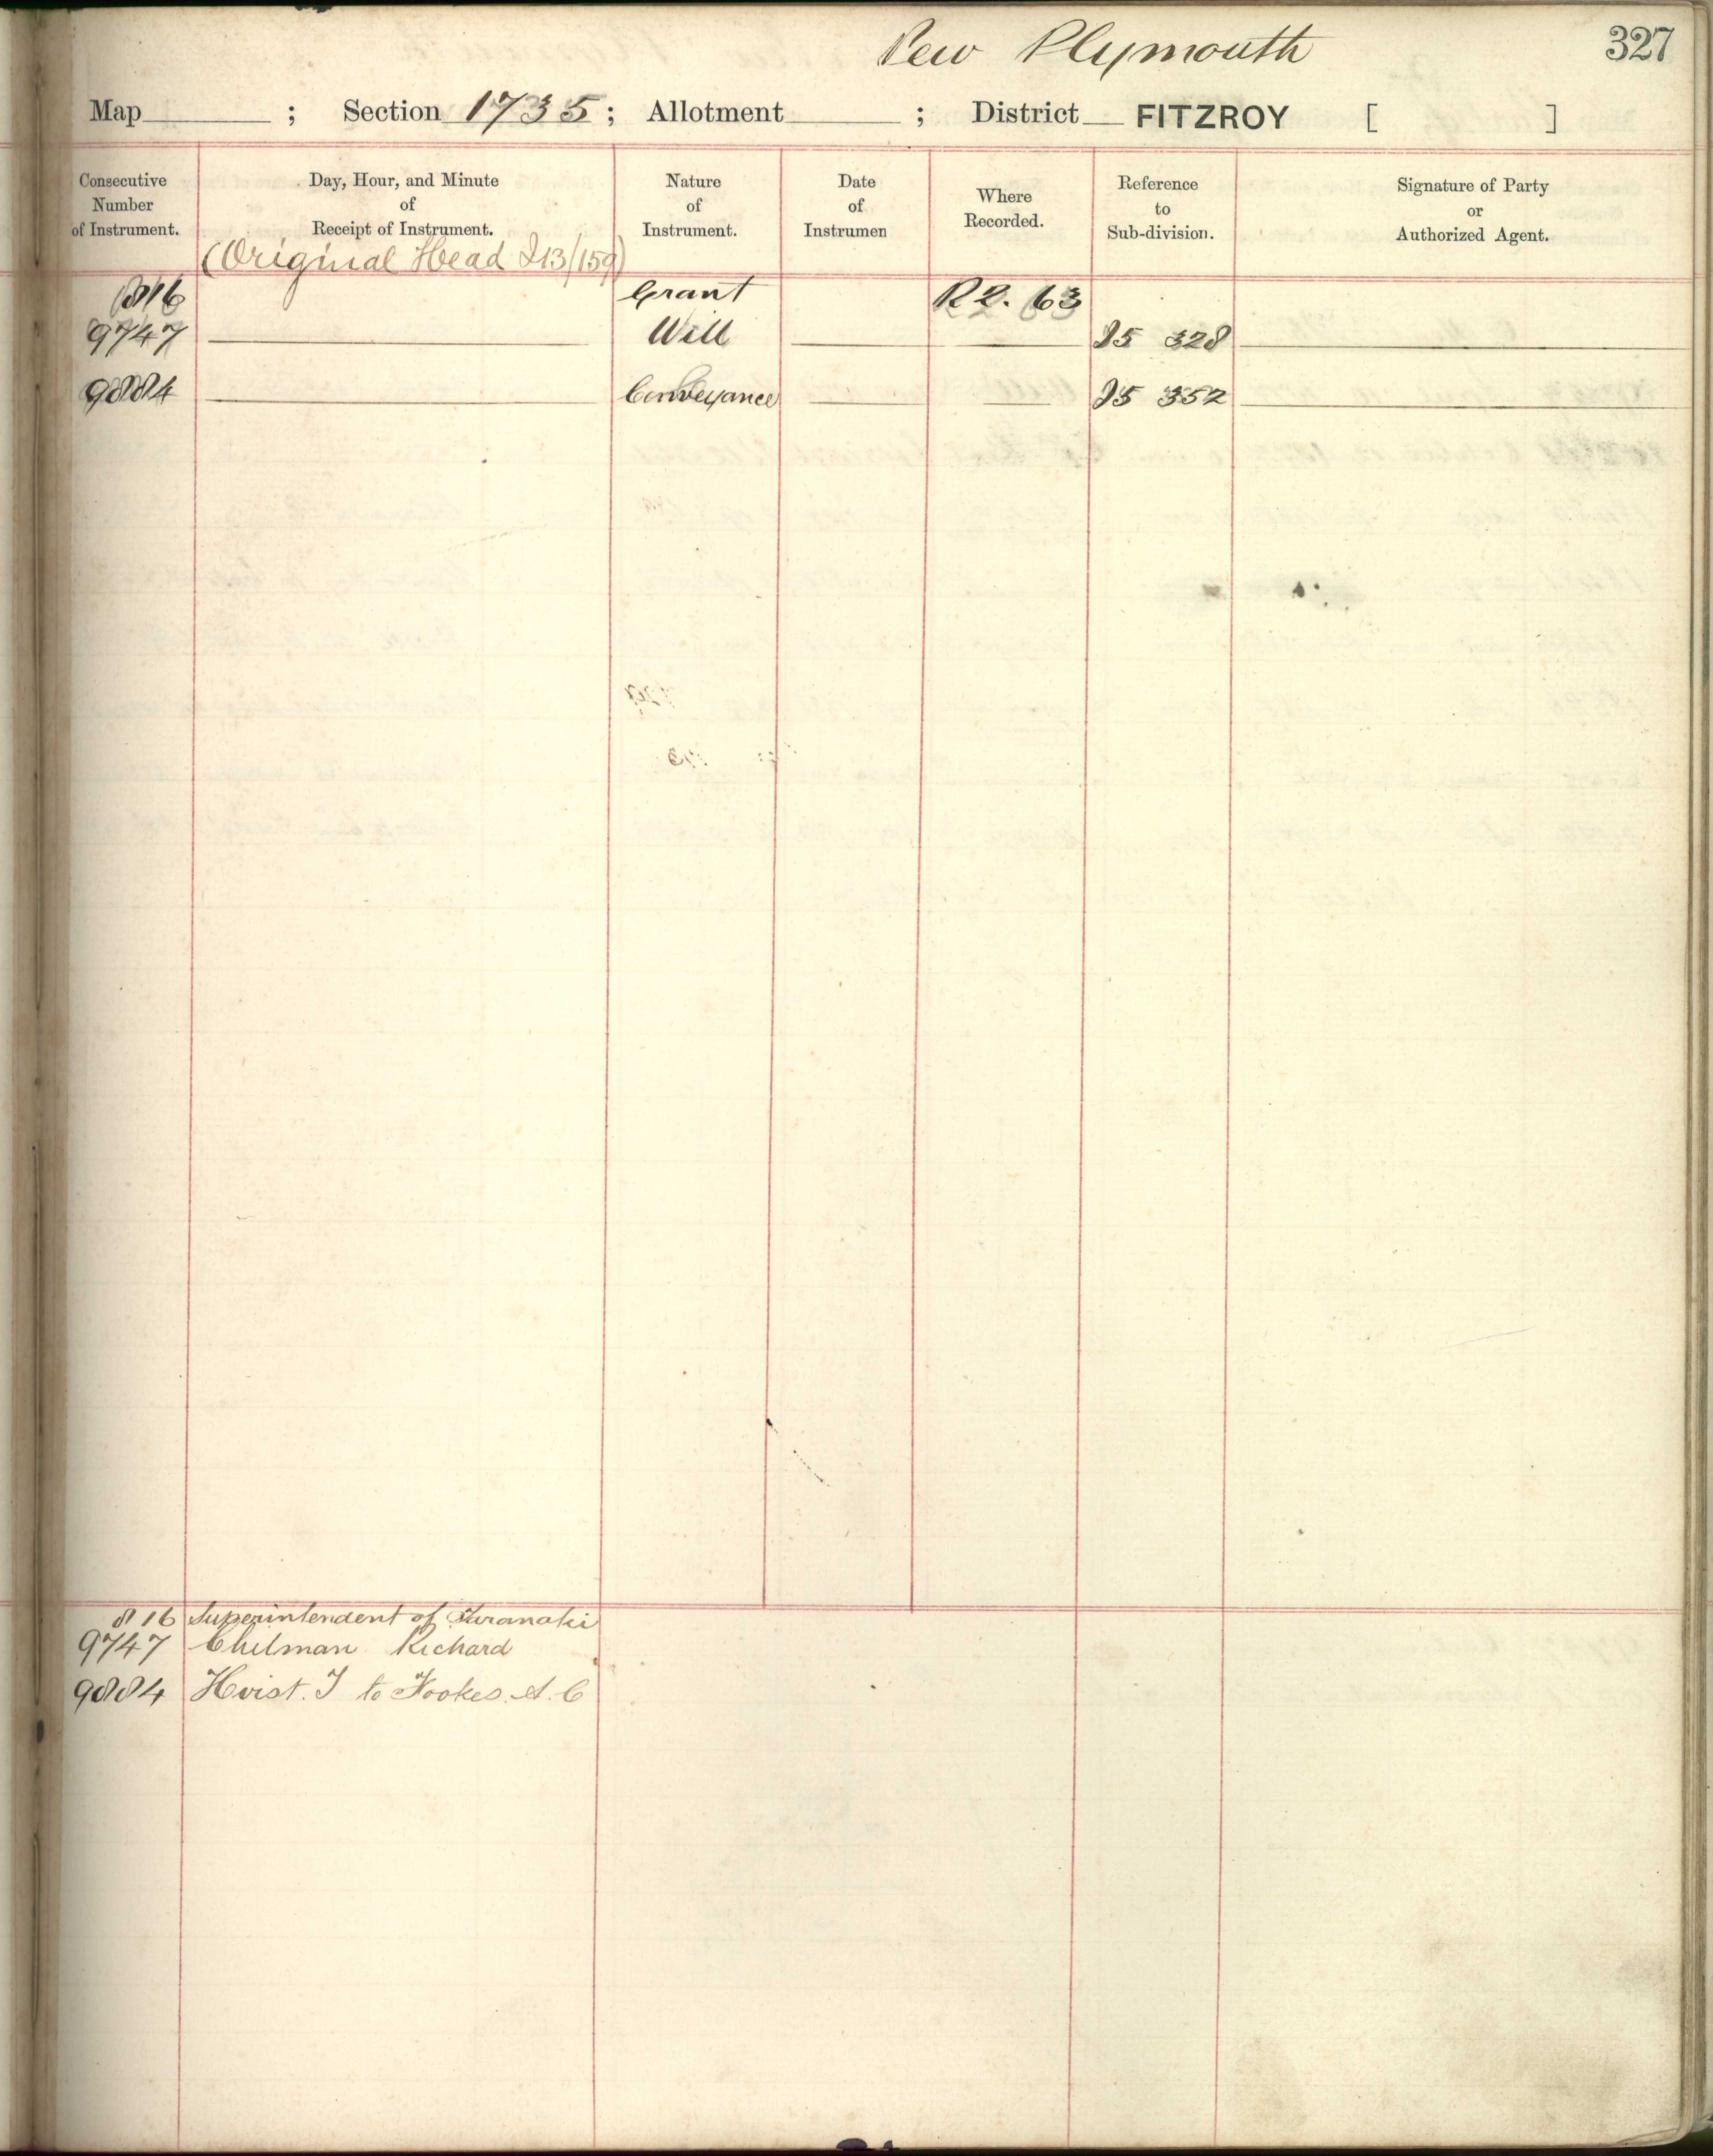 New Plymouth 327
Map ; Section 1735 ; Allotment ; District FITZROY [ ]
Consecutive Number of Instrument. Day, Hour, and Minute of Receipt of Instrument. Nature of Instrument. Date of Instrumen Where Recorded. Reference to Sub-division. Signature of Party or Authorized Agent.
(Original Head I13/159)
816 Grant R2. 63
9747 Will I5 328
9884 Conveyance I5 352
816 Superintendent of Taranaki
9747 Chilman Richard
9884 to Fookes. A. C